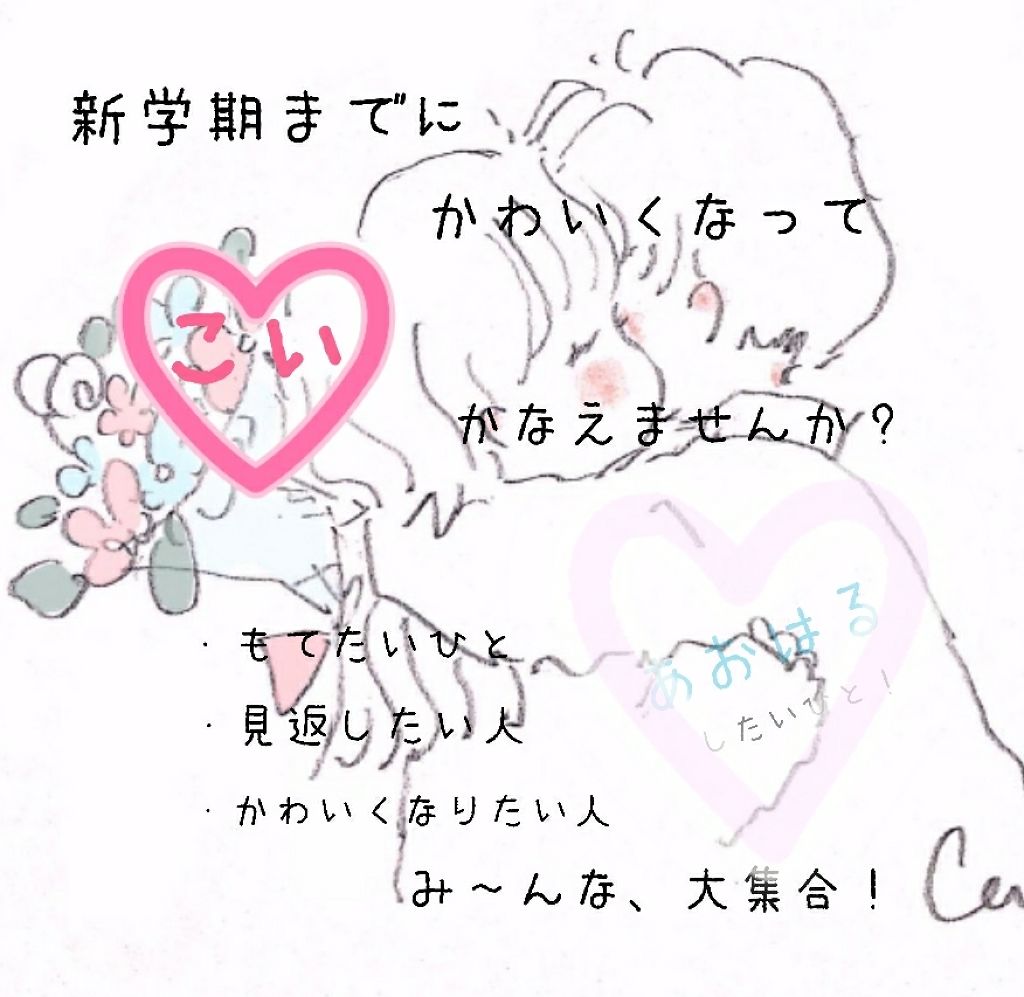 新学期までに
かわいくなって
こい
かなえませんか？
あおはる
したいひと！
・もてたいひと
・見返したい人
・かわいくなりたい人
み〜んな、大集合！